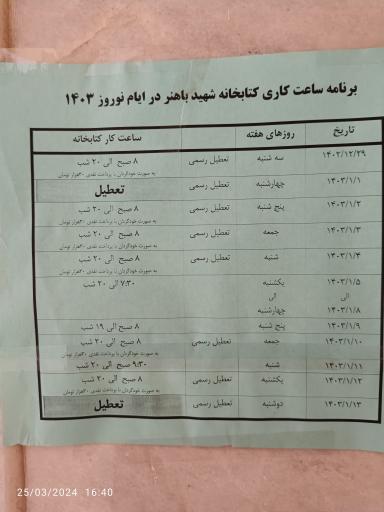 برنامه ساعت کاری کتابخانه شهید باهنر در ایام نوروز ۱۴۰۳
تاریخ روزهای هفته ساعت کار کتابخانه
۱۴۰۲/۱۲/۲۹ سه شنبه تعطیل رسمی ۸ صبح الی ۲۰ شب
به صورت خودگردان با پرداخت نقدی ۲۰هزار تومان
۱۴۰۳/۱/۱ چهارشنبه تعطیل رسمی تعطیل
۱۴۰۳/۱/۲ پنج شنبه تعطیل رسمی ۸ صبح الی ۲۰ شب
به صورت خودگردان با پرداخت نقدی ۲۰هزار تومان
۱۴۰۳/۱/۳ جمعه تعطیل رسمی ۸ صبح الی ۲۰ شب
به صورت خودگردان با پرداخت نقدی ۲۰هزار تومان
۱۴۰۳/۱/۴ شنبه تعطیل رسمی ۸ صبح الی ۲۰ شب
به صورت خودگردان با پرداخت نقدی ۲۰هزار تومان
۱۴۰۳/۱/۵ یکشنبه ۷:۳۰ الی ۲۰ شب
الی الی
۱۴۰۳/۱/۸ چهارشنبه
۱۴۰۳/۱/۹ پنج شنبه ۸ صبح الی ۱۹ شب
۱۴۰۳/۱/۱۰ جمعه تعطیل رسمی ۸ صبح الی ۲۰ شب
به صورت خودگردان با پرداخت نقدی ۲۰هزار تومان
۱۴۰۳/۱/۱۱ شنبه ۹:۳۰ صبح الی ۲۰ شب
۱۴۰۳/۱/۱۲ یکشنبه تعطیل رسمی ۸ صبح الی ۲۰ شب
به صورت خودگردان با پرداخت نقدی ۲۰هزار تومان
۱۴۰۳/۱/۱۳ دوشنبه تعطیل رسمی تعطیل
25/03/2024 16:40